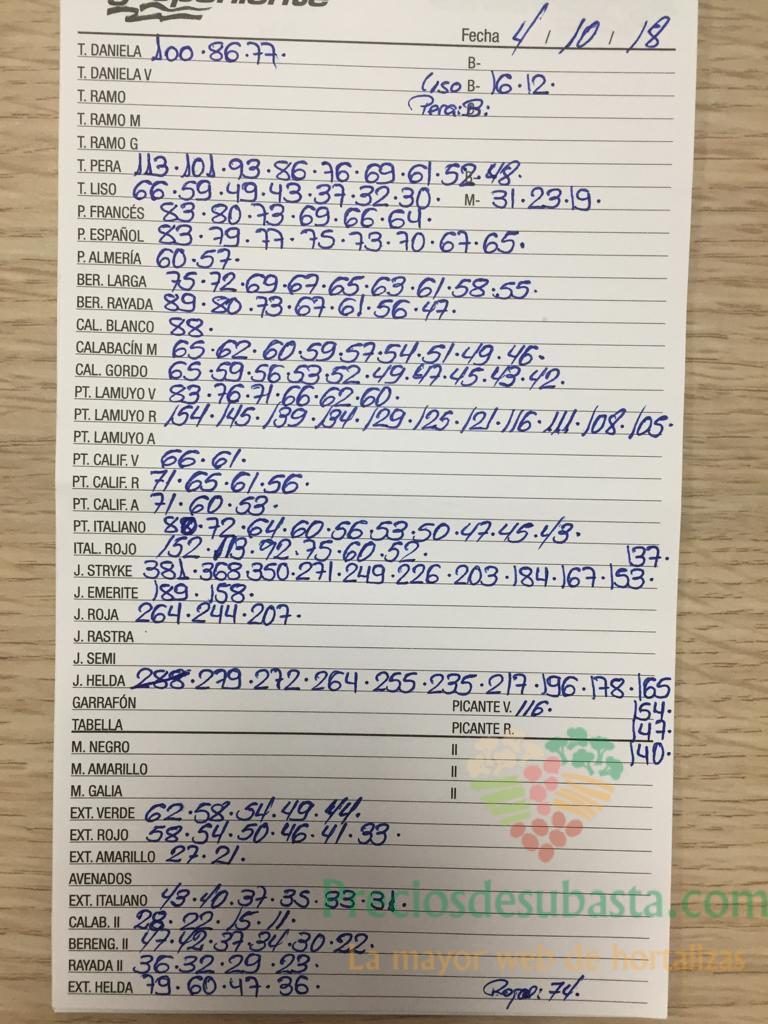 Fecha 4 / 10 / 18
T. DANIELA 100·86·77· B-
T. DANIELA V Liso B- 16·12·
T. RAMO Pera: B:
T. RAMO M
T. RAMO G
T. PERA 113·101·93·86·76·69·61·52·48·
T. LISO 66·59·49·43·37·32·30· M- 31·23·19·
P. FRANCÉS 83·80·73·69·66·64·
P. ESPAÑOL 83·79·77·75·73·70·67·65·
P. ALMERÍA 60·57·
BER. LARGA 75·72·69·67·65·63·61·58·55·
BER. RAYADA 89·80·73·67·61·56·47·
CAL. BLANCO 88·
CALABACÍN M 65·62·60·59·57·54·51·49·46·
CAL. GORDO 65·59·56·53·52·49·47·45·43·42·
PT. LAMUYO V 83·76·71·66·62·60·
PT. LAMUYO R 154·145·139·134·129·125·121·116·111·108·105·
PT. LAMUYO A
PT. CALIF. V 66·61·
PT. CALIF. R 71·65·61·56·
PT. CALIF. A 71·60·53·
PT. ITALIANO 80·72·64·60·56·53·50·47·45·43·
ITAL. ROJO 152·113·92·75·60·52· 137·
J. STRYKE 381·368·350·271·249·226·203·184·167·153·
J. EMERITE 189·158·
J. ROJA 264·244·207·
J. RASTRA
J. SEMI
J. HELDA 288·279·272·264·255·235·217·196·178·165
GARRAFÓN PICANTE V. 116· 154·
TABELLA PICANTE R. 147·
M. NEGRO II 140·
M. AMARILLO II
M. GALIA II
EXT. VERDE 62·58·54·49·44·
EXT. ROJO 58·54·50·46·41·33·
EXT. AMARILLO 27·21·
AVENADOS
EXT. ITALIANO 43·40·37·35·33·31·
Preciosdesubasta.com
CALAB. II 28·22·15·11·
BERENG. II 47·42·37·34·30·22·
La mayor web de hortalizas
RAYADA II 36·32·29·23·
EXT. HELDA 79·60·47·36· Rojo: 74·